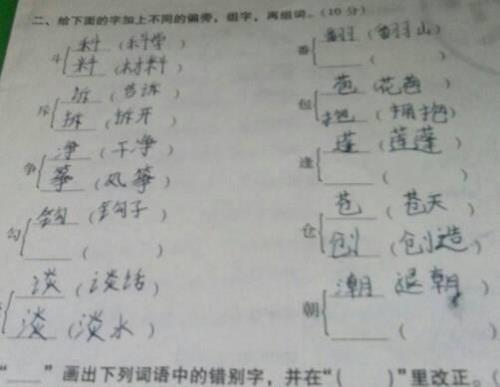 二、给下面的字加上不同的偏旁，组字，再组词。(10 分)
斗 科 (科学)
料 (材料)
斥 诉 (告诉)
拆 (拆开)
争 净 (干净)
筝 (风筝)
勾 钩 (钩子)
( )
谈 (谈话)
淡 (淡水)
番 翻 (翻山)
( )
包 苞 (花苞)
抱 (拥抱)
逢 蓬 (莲蓬)
( )
仓 苍 (苍天)
创 (创造)
朝 潮 (退朝)
( )
"____"画出下列词语中的错别字，并在"( )"里改正。(